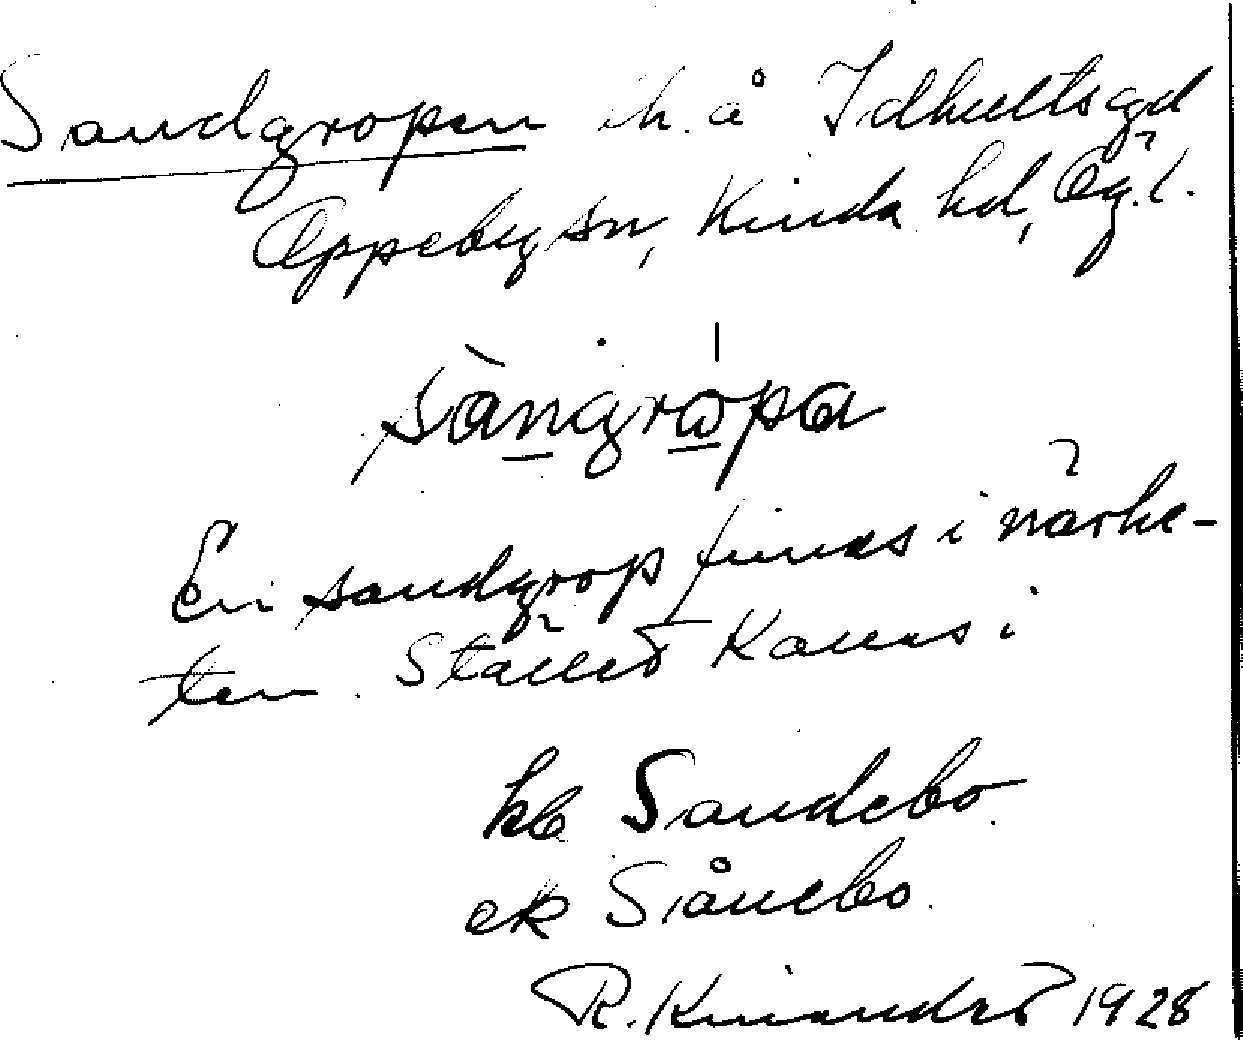 Sandgropen th. å Idhultsgd
Oppeby sn, Kinda hd, Ög.l.
sàngrópa
En sandgrop finnes i närhe-
ten. Stället kallas i
kb Sandebo.
ek Sånebo.
R. Kinander 1928